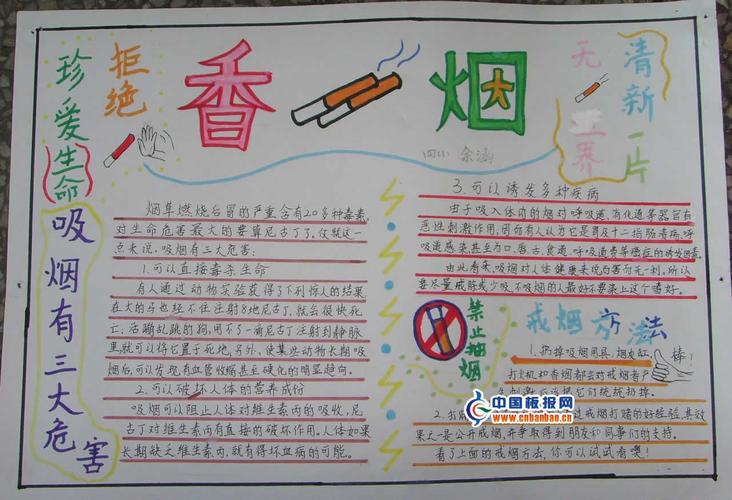 珍爱生命
拒绝
香烟
无
烟
世界
清新一片
四小 余涵
吸烟有三大危害
烟草燃烧后冒的严重含有20多种毒素,
对生命危害最大的要算尼古丁了。仅就这一
点来说,吸烟有三大危害:
1.可以直接毒杀生命
有人通过动物实验获得了下列惊人的结果,
在大的马也经不住注射8地尼古丁,就会很快死
亡;活蹦乱跳的狗,用不了一滴尼古丁注射到静脉
里,就可以将它置于死地;另外,使某些动物长期吸
烟后,可以发现有血管收缩甚至硬化的明显趋向。
2.可以破坏人体的营养成份
吸烟可以阻止人体对维生素丙的吸收,尼
古丁对维生素丙有直接的破坏作用。人体如果
长期缺乏维生素丙,就有得坏血病的可能。
3.可以诱发多种疾病
由于吸入体内的烟对呼吸道、消化道等器官有
恶性刺激作用,因而有人认为它是胃及十二指肠溃病、呼
吸道感染甚至为口、唇、舌、食道、呼吸道费等癌症的诱发因素。
由此看来,吸烟对人体健康来说为害而无一利,所以
要尽量戒除或少吸,不吸烟的人最好不要染上这个嗜好。
禁止抽烟
戒烟方法
棒!
1.扔掉吸烟用具,烟灰缸,
打火机和香烟都会对戒烟者产
刺激,应该把它们统统扔掉。
过戒烟打赌的好经验,其效
果之一是公开戒烟,并争取得到朋友和同事们的支持。
看了上面的戒烟方法,你可以试试看噢!
中国板报网
www.cnbanbao.cn